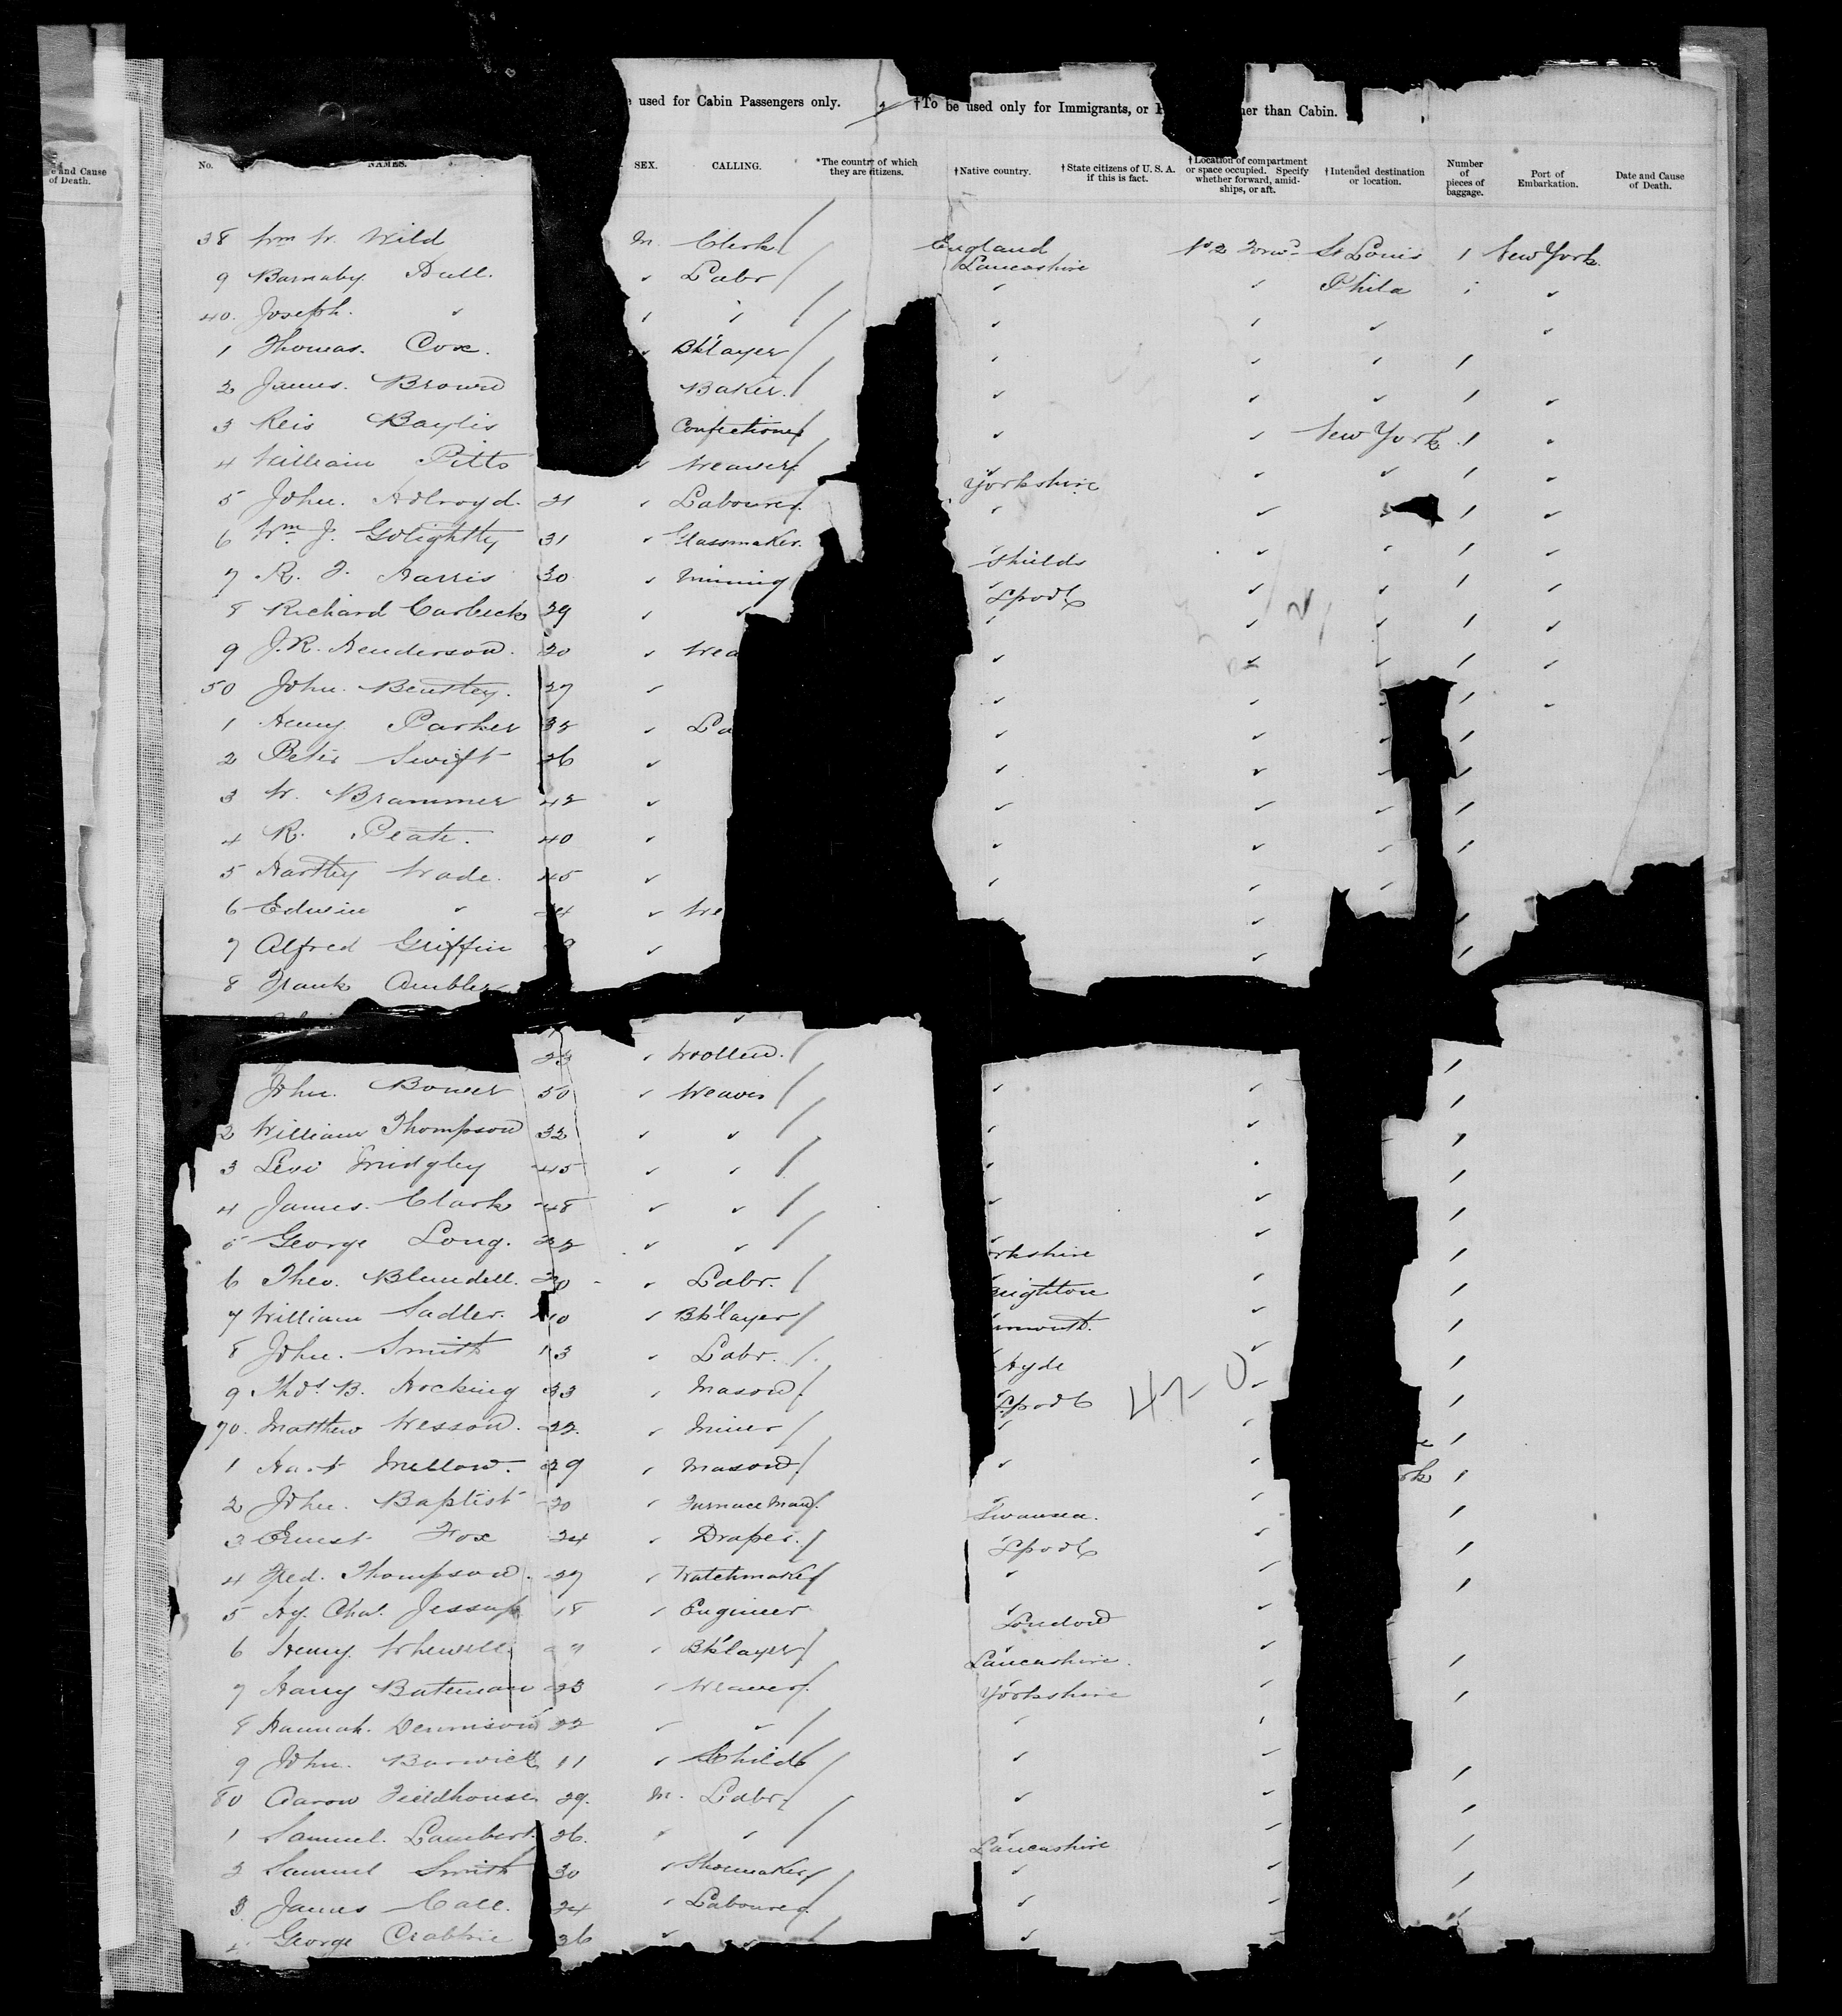 e and Cause
of Death.
used for Cabin Passengers only. †To be used only for Immigrants, or her than Cabin.
No. NAMES. SEX. CALLING. *The country of which they are citizens. †Native country. †State citizens of U. S. A. if this is fact. †Location of compartment or space occupied. Specify whether forward, amidships, or aft. †Intended destination or location. Number of pieces of baggage. Port of Embarkation. Date and Cause of Death.
38 Wm W. Wild M. Clerk / England Lancashire St Louis 1 New York
9 Barnaby Hull Labr / ✓ ✓ Phila ✓
40. Joseph. ✓ /
1 Thomas. Cox. Bk'layer /
2 James. Brown Baker. / ✓ ✓ ✓ / ✓
3 Reis Baylis Confectioner / ✓ ✓ New York /
4 William Pitts Weaver / ✓
5 John. Holroyd. 21 Labourer / Yorkshire
6 Wm J. Golightly 31 Glassmaker.
7 R. J. Harris 30 Mining Shields
8 Richard Carbeck 29 ✓ ✓ Lpool
9 J. R. Henderson. 20 ✓ Wea
50 John. Bentley. 27 ✓
1 Henry Parker 38 ✓ La
2 Peter Swift 26 ✓
3 W. Brammer 42 ✓
4 R. Peate. 40 ✓
5 Hartley Wade. 45 ✓
6 Edwin ✓ ✓ We
7 Alfred Griffin ✓
8 Frank Ambler
23 Woollen. /
John. Bower 50 Weaver /
2 William Thompson 32 ✓ ✓ /
3 Levi Midgley 45 ✓ ✓ /
4 James. Clark 48 ✓ ✓ /
5 George Long. 22 ✓ ✓ /
6 Theo. Blundell. Labr. / orkshire
7 William Sadler. Bk'layer / eighton
8 John. Smith Labr. / mouth.
9 Thos. B. Hocking 33 Mason / Hyde
70. Matthew Wesson. 22. Miner / Lpool 47-0
1 Mellow. 29 Mason /
2 John. Baptist 20 Furnace Man / rk
3 Ernest Fox 24 Draper. / Swansea.
4 Fred. Thompson. 27 Watchmaker / Lpool
5 Hy. Chas. Jessup 18 Engineer
6 Henry. Whewell Bk'layer / London
7 Harry Bateman 23 Weaver / Lancashire.
8 Hannah. Dennison 22 ✓ ✓ / Yorkshire
9 John. Barwick 11 Child /
80 Aaron Fieldhouse 29. M. Labr. /
1 Samuel. Lambert. 26. ✓ ✓ /
2 Samuel Smith 30 Shoemaker / Lancashire
3 James Call. 24 Labourer /
George Crabtrie 36 ✓ /